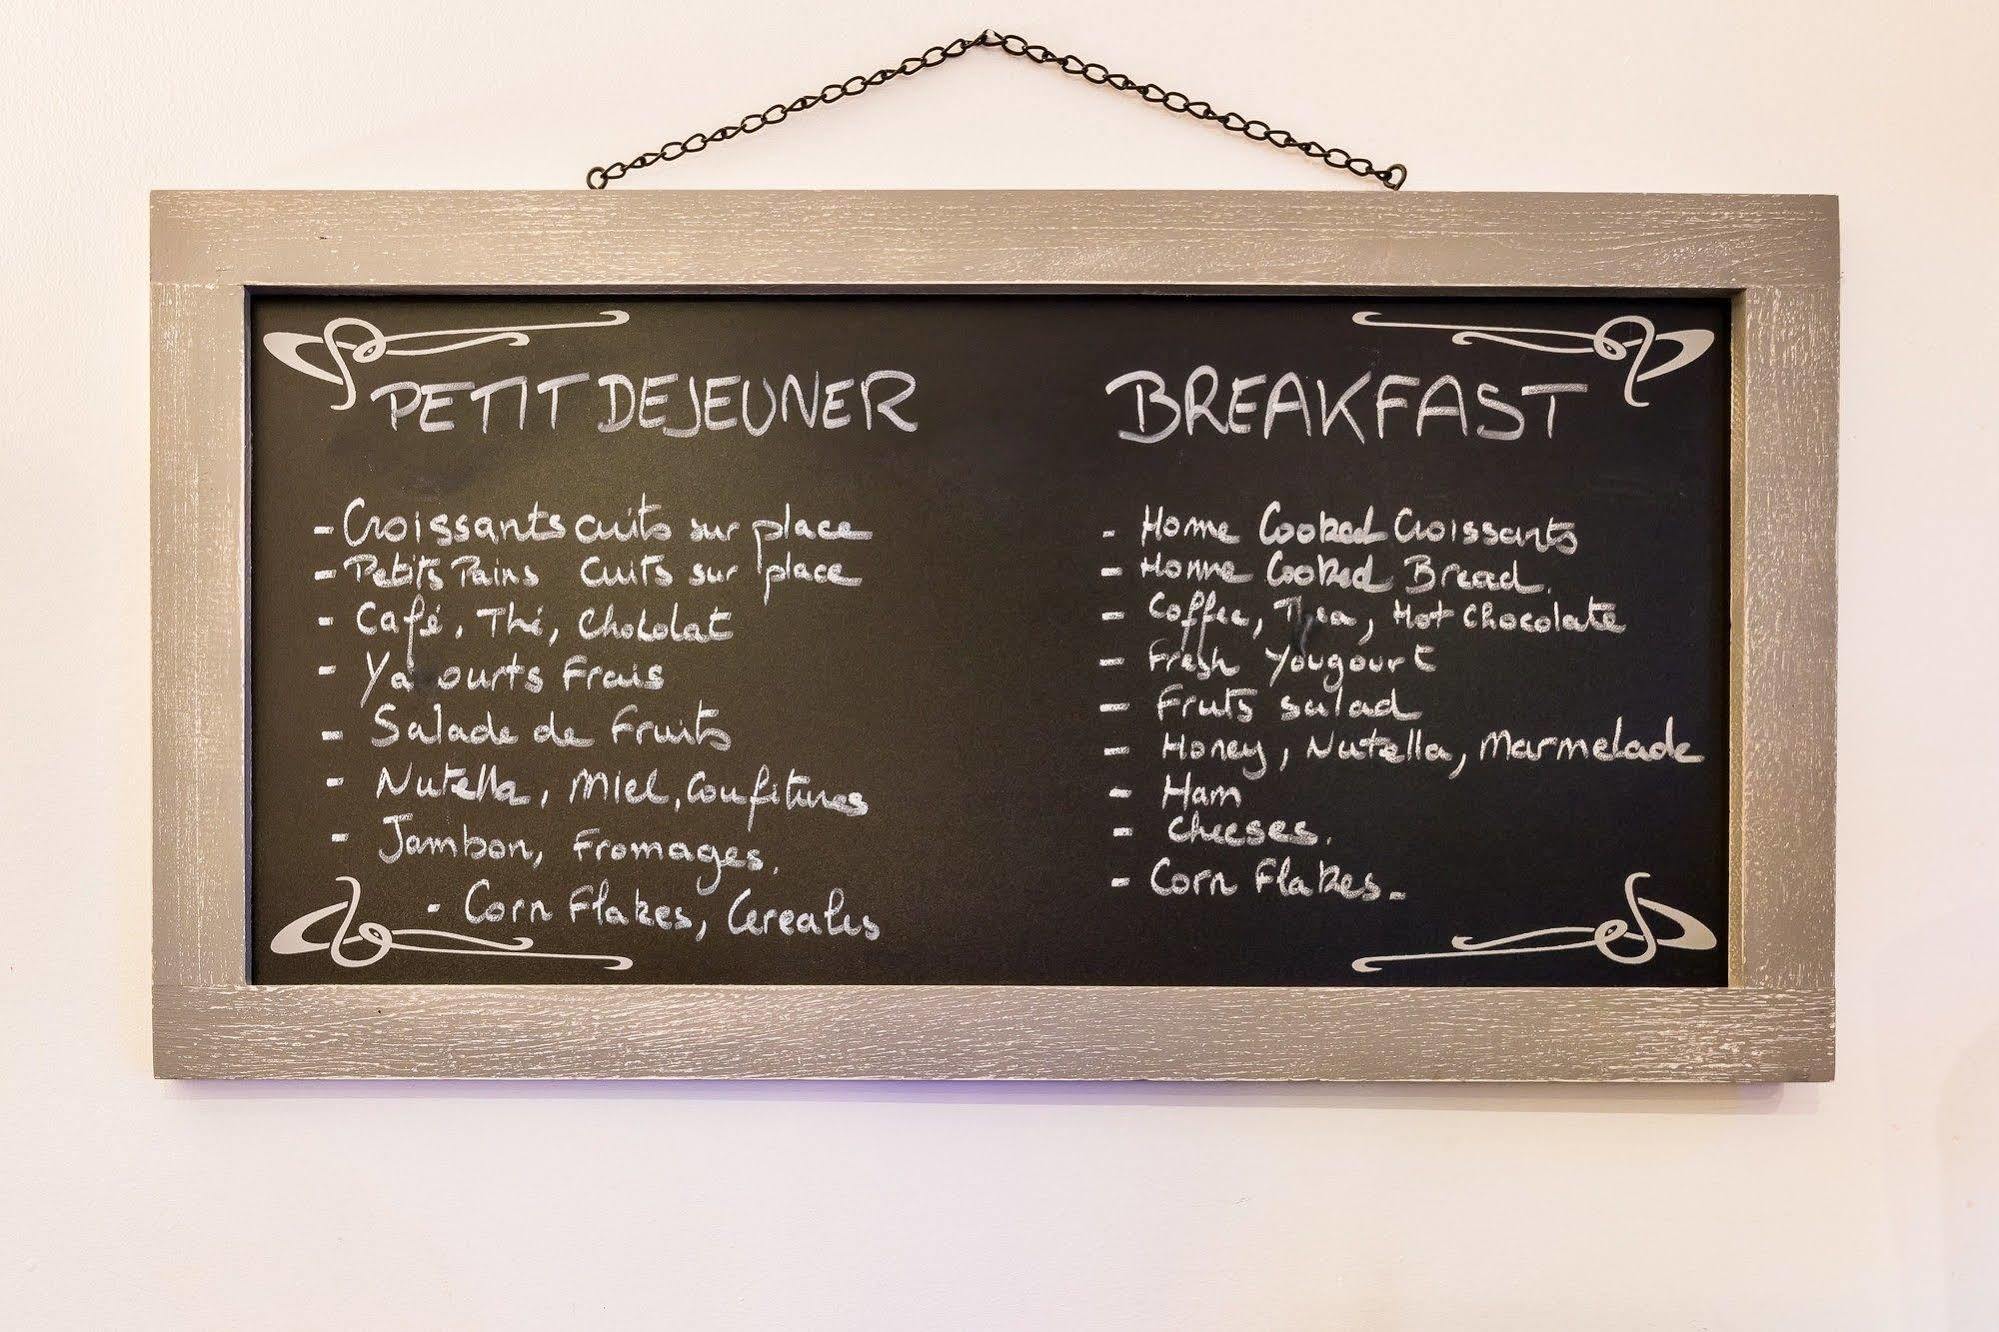 PETIT DEJEUNER
- Croissants cuits sur place
- Petits Pains cuits sur place
- Café, Thé, Chocolat
- Ya ourts Frais
- Salade de Fruits
- Nutella, Miel, Confitures
- Jambon, Fromages.
- Corn Flakes, Cereales
BREAKFAST
- Home Cooked Croissants
- Home Cooked Bread.
- Coffee, Tea, Hot Chocolate
- Fresh Yougourt
- Fruts salad
- Honey, Nutella, Marmelade
- Ham
- Cheeses.
- Corn Flakes -